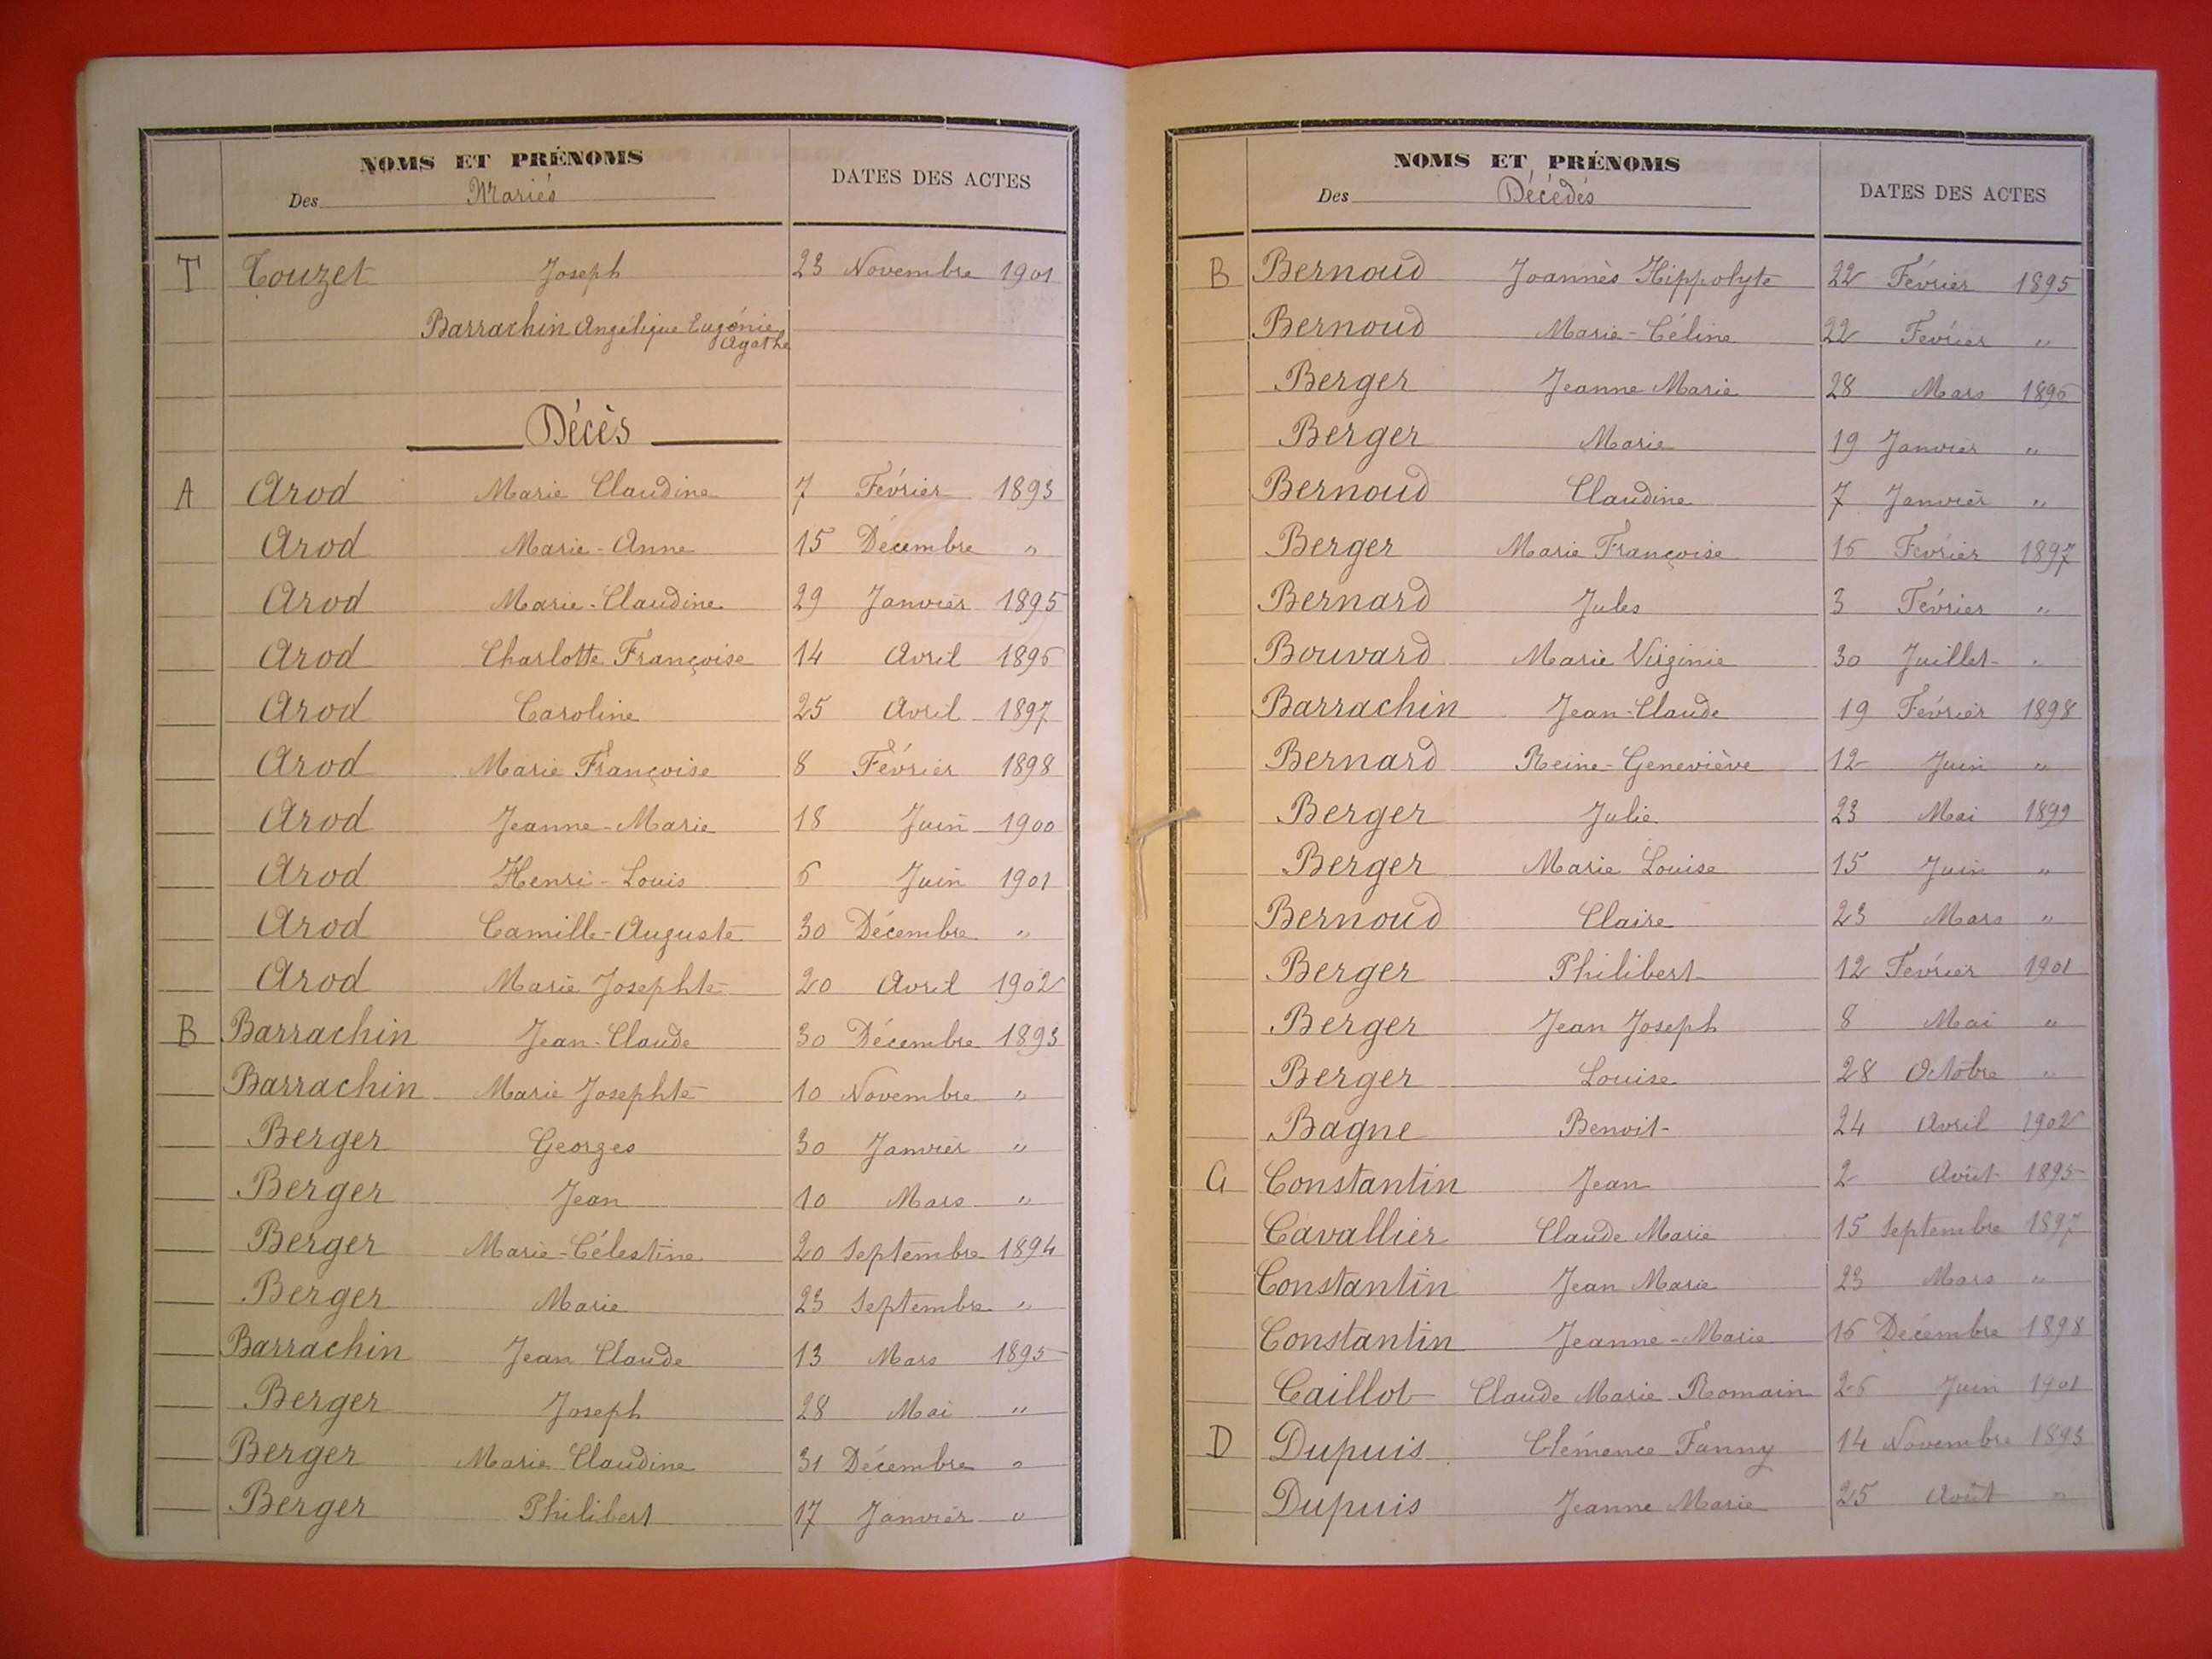 NOMS ET PRÉNOMS
Des Mariés
DATES DES ACTES
T Touzet Joseph 23 Novembre 1901
Barrachin Angélique Eugénie
Agathe
Décès
A Arod Marie Claudine 7 Février 1893
Arod Marie-Anne 15 Décembre "
Arod Marie-Claudine 29 Janvier 1895
Arod Charlotte Françoise 14 Avril 1896
Arod Caroline 25 Avril 1897
Arod Marie Françoise 8 Février 1898
Arod Jeanne-Marie 18 Juin 1900
Arod Henri-Louis 6 Juin 1901
Arod Camille-Auguste 30 Décembre "
Arod Marie Josephte 20 Avril 1902
B Barrachin Jean-Claude 30 Décembre 1893
Barrachin Marie Josephte 10 Novembre "
Berger Georges 30 Janvier "
Berger Jean 10 Mars "
Berger Marie-Célestine 20 Septembre 1894
Berger Marie 23 Septembre "
Barrachin Jean Claude 13 Mars 1895
Berger Joseph 28 Mai "
Berger Marie Claudine 31 Décembre "
Berger Philibert 17 Janvier "
NOMS ET PRÉNOMS
Des Décédés
DATES DES ACTES
B Bernoud Joannès Hippolyte 22 Février 1895
Bernoud Marie-Céline 22 Février "
Berger Jeanne Marie 28 Mars 1896
Berger Marie 19 Janvier "
Bernoud Claudine 7 Janvier "
Berger Marie Françoise 16 Février 1897
Bernard Jules 3 Février "
Bouvard Marie Virginie 30 Juillet "
Barrachin Jean-Claude 19 Février 1898
Bernard Reine-Geneviève 12 Juin "
Berger Julie 23 Mai 1899
Berger Marie Louise 15 Juin "
Bernoud Claire 23 Mars "
Berger Philibert 12 Février 1901
Berger Jean Joseph 8 Mai "
Berger Louise 28 Octobre "
Bagne Benoit 24 Avril 1902
C Constantin Jean 2 Août 1895
Cavallier Claude Marie 15 Septembre 1897
Constantin Jean Marie 23 Mars "
Constantin Jeanne-Marie 16 Décembre 1898
Caillot Claude Marie Romain 26 Juin 1901
D Dupuis Clémence Fanny 14 Novembre 1893
Dupuis Jeanne Marie 25 Août "